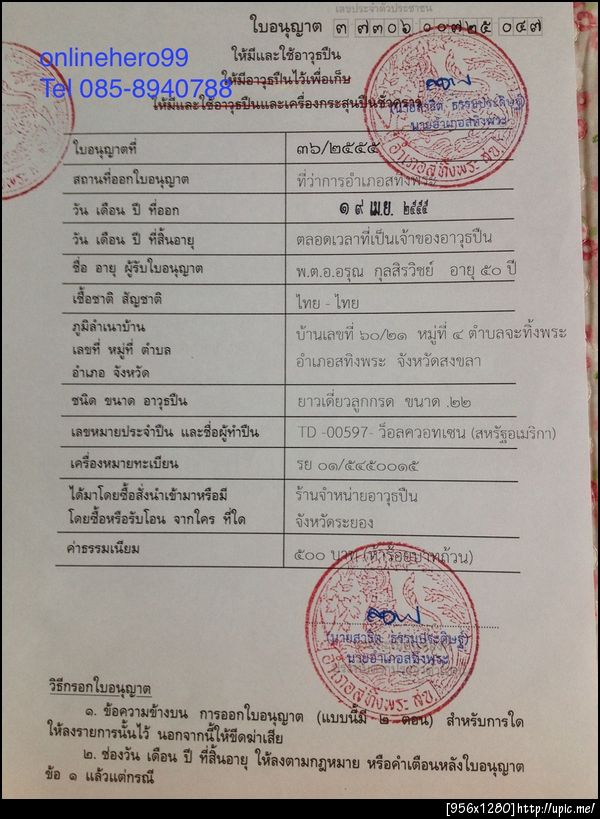 เลขประจำตัวประชาชน
ใบอนุญาต ๓ ๗๓๐๖ ๐๐๗๒๕ ๐๔๗
onlinehero99
ให้มีและใช้อาวุธปืน
Tel 085-8940788
ให้มีอาวุธปืนไว้เพื่อเก็บ
ให้มีและใช้อาวุธปืนและเครื่องกระสุนปืนชั่วคราว
(นายสาธิต ธรรมประดิษฐ์)
นายอำเภอสทิงพระ
ใบอนุญาตที่ ๓๖/๒๕๕๕
สถานที่ออกใบอนุญาต ที่ว่าการอำเภอสทิงพระ
วัน เดือน ปี ที่ออก ๑๙ เม.ย. ๒๕๕๕
วัน เดือน ปี ที่สิ้นอายุ ตลอดเวลาที่เป็นเจ้าของอาวุธปืน
ชื่อ อายุ ผู้รับใบอนุญาต พ.ต.อ.อรุณ กุลสิรวิชย์ อายุ ๕๐ ปี
เชื้อชาติ สัญชาติ ไทย - ไทย
ภูมิลำเนาบ้าน
เลขที่ หมู่ที่ ตำบล
อำเภอ จังหวัด
บ้านเลขที่ ๖๐/๒๑ หมู่ที่ ๔ ตำบลจะทิ้งพระ
อำเภอสทิงพระ จังหวัดสงขลา
ชนิด ขนาด อาวุธปืน ยาวเดี่ยวลูกกรด ขนาด .๒๒
เลขหมายประจำปืน และชื่อผู้ทำปืน TD -00597- ว็อลควอทเซน (สหรัฐอเมริกา)
เครื่องหมายทะเบียน รย ๐๑/๕๔๕๐๐๑๕
ได้มาโดยซื้อสั่งนำเข้ามาหรือมี ร้านจำหน่ายอาวุธปืน
โดยซื้อหรือรับโอน จากใคร ที่ใด จังหวัดระยอง
ค่าธรรมเนียม ๕๐๐ บาท (ห้าร้อยบาทถ้วน)
(นายสาธิต ธรรมประดิษฐ์)
นายอำเภอสทิงพระ
วิธีกรอกใบอนุญาต
๑. ข้อความข้างบน การออกใบอนุญาต (แบบนี้มี ๒ ตอน) สำหรับการใด
ให้ลงรายการนั้นไว้ นอกจากนี้ให้ขีดฆ่าเสีย
๒. ช่องวัน เดือน ปี ที่สิ้นอายุ ให้ลงตามกฎหมาย หรือคำเตือนหลังใบอนุญาต
ข้อ ๑ แล้วแต่กรณี
[956x1280]http://upic.me/